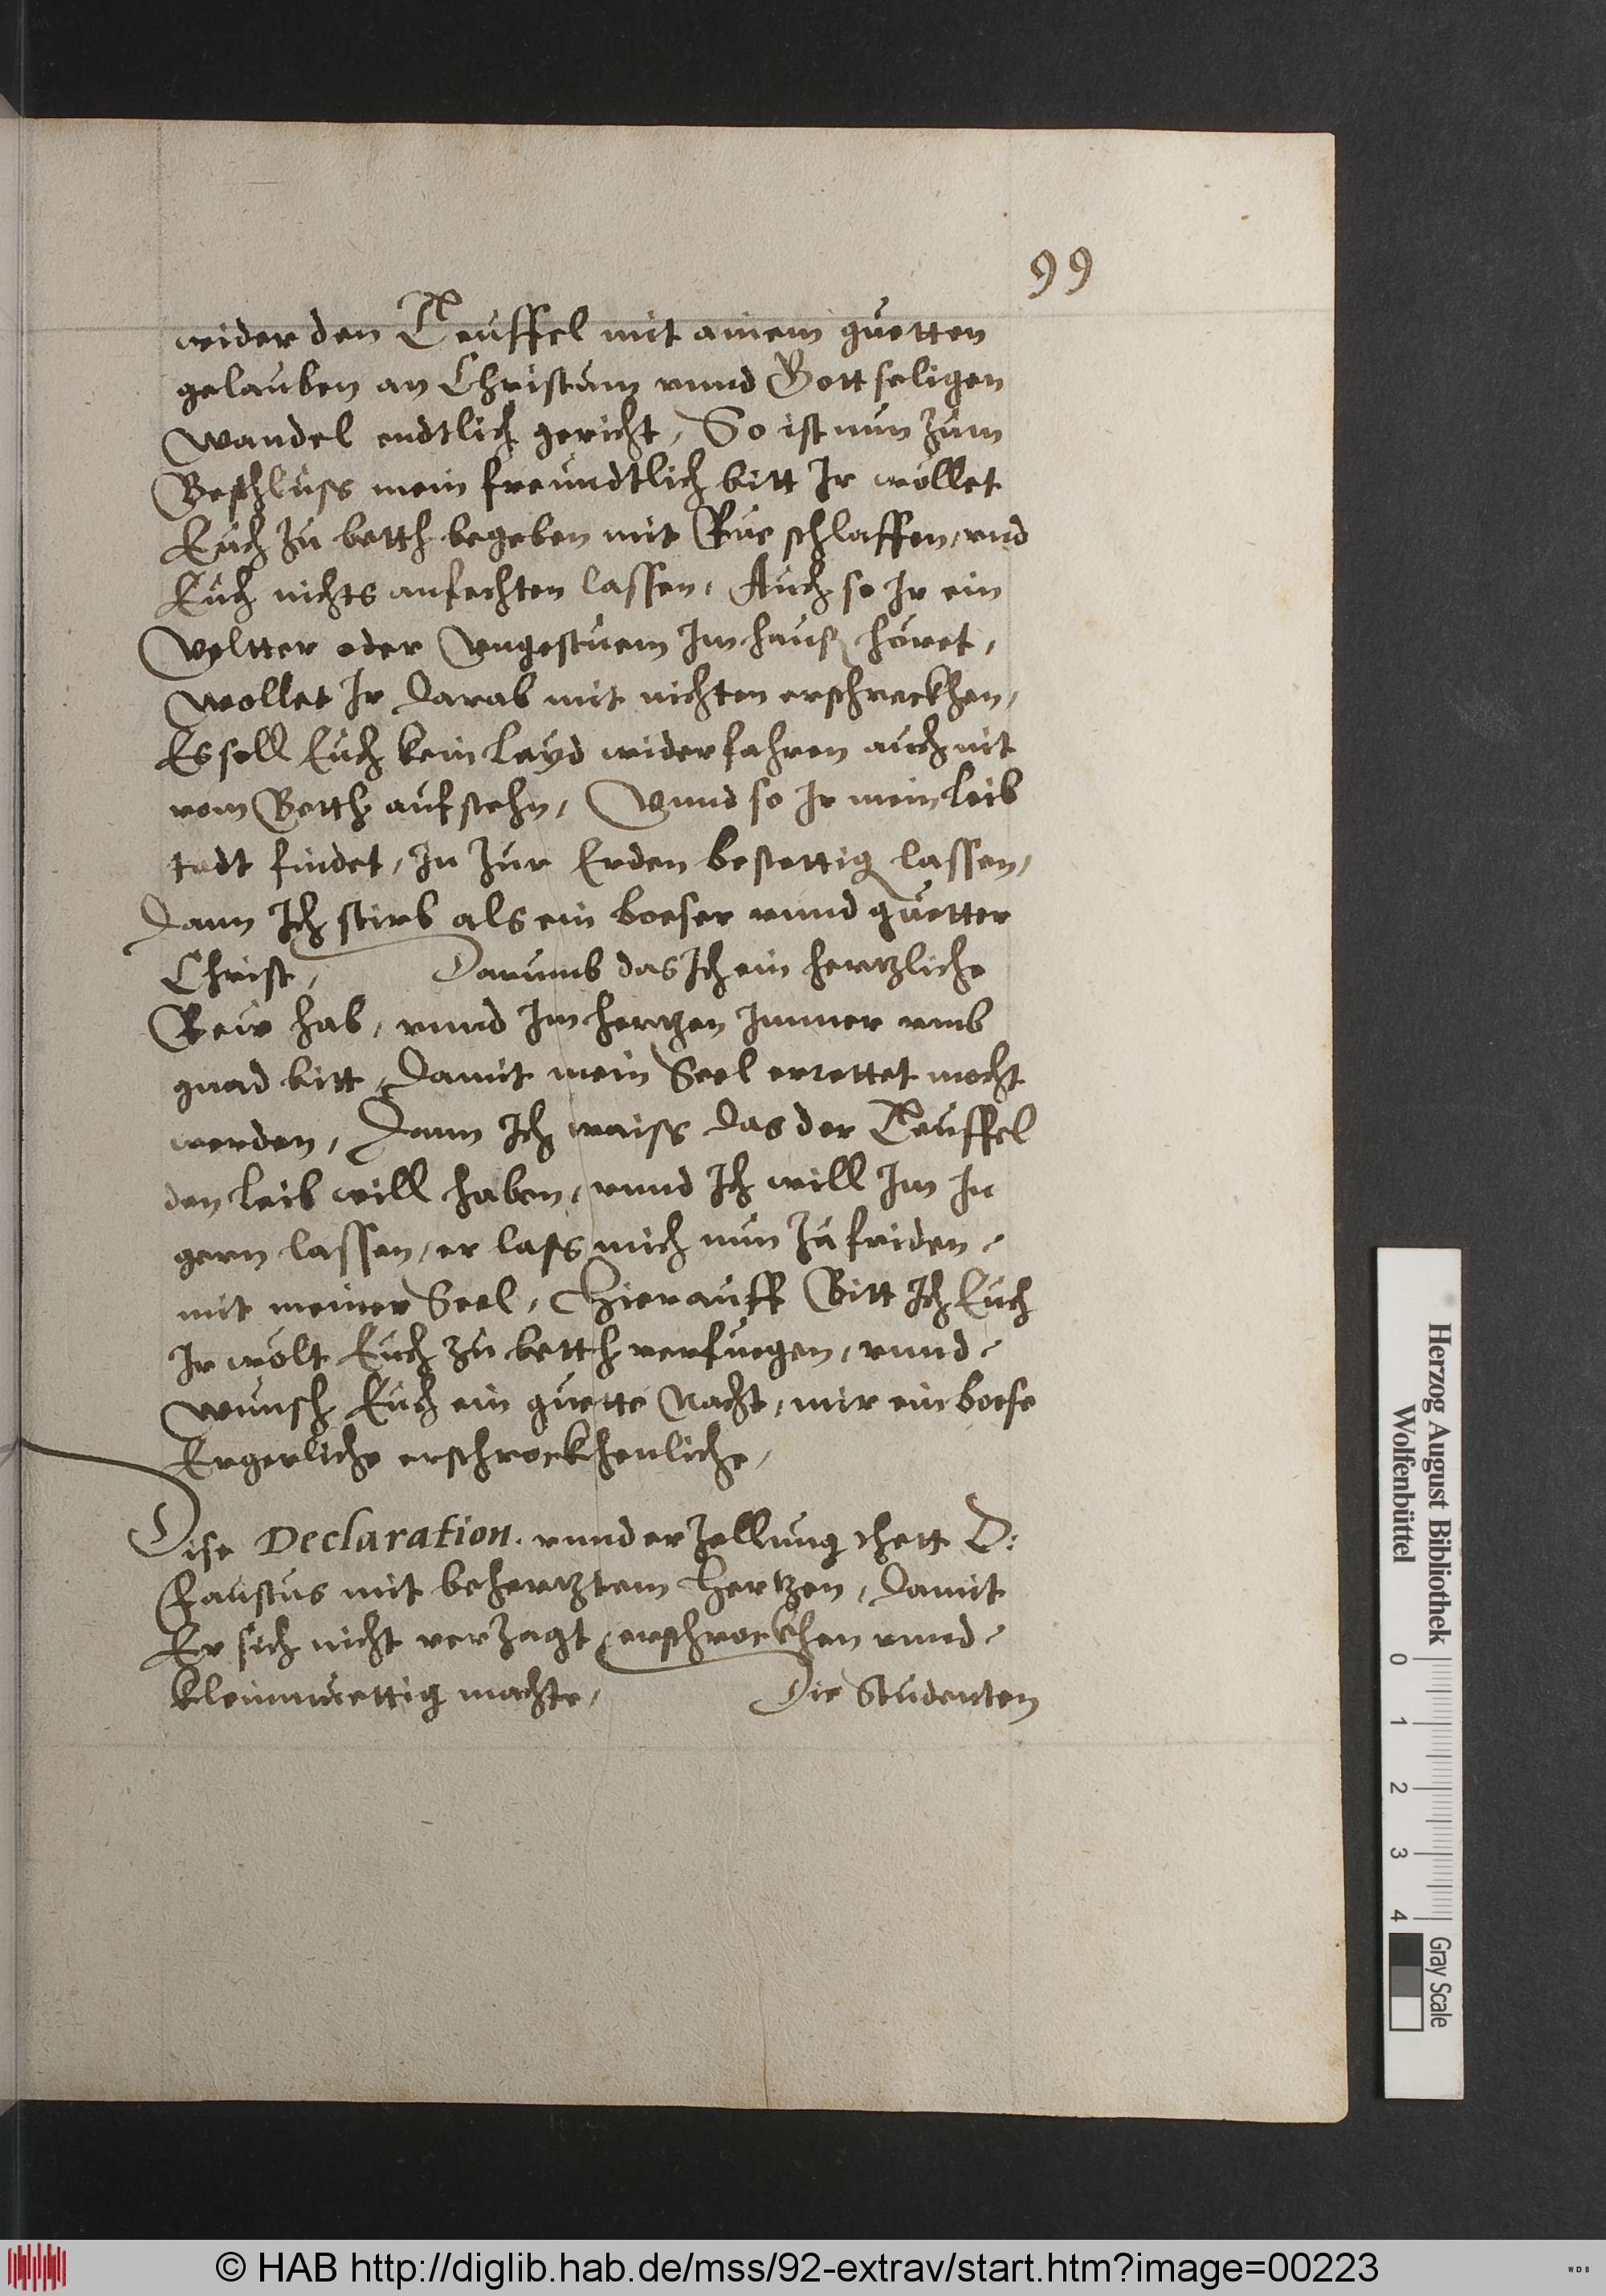 99
wider den Teuffel mit ainem guetten
gelauben an Christum vnnd Gottseligen
wandel endtlich gericht, So ist nun zum
Beschluss mein freundtlich bitt Ir wöllet
Euch zu betth begeben mit Rue schlaffen, vnd
Euch nichts anfechten lassen, Auch so Ir ein
Vngestuem Im hauß höret,
wollet Ir darab mit nichten erschreckhen,
Es soll Euch kein layd widerfahren auch nit
vom Betth aufstehn, Vnnd so Ir mein leib
todt findet, In zur Erden bestettig lassen,
dann Ich stirb als ein boeser vnnd guetter
Christ, Darumb das Ich ein hertzliche
Rew hab, vnnd Im hertzen Immer vmb
gnad bitt, damit mein Seel errettet mocht
werden, Dann Ich waiss das der Teuffel
den leib will haben, vnnd Ich will Im In
gern lassen, er lass mich nun zu friden
mit meiner Seel, Hierauff Bitt Ich Euch
Ir wölt Euch zu betth verfuegen, vnnd
wunsch Euch ein guette Nacht, mir ein boese
Ergerliche erschrockhenliche,
Dise Declaration. vnnd erzellung thett D:
Faustus mit behertztem Hertzen, damit
Er sich nicht verzagt, erschrockhen vnnd
kleinmuettig machte, Die Studenten
Herzog August Bibliothek
Wolfenbüttel
0 1 2 3 4
Gray Scale
© HAB http://diglib.hab.de/mss/92-extrav/start.htm?image=00223
WDB